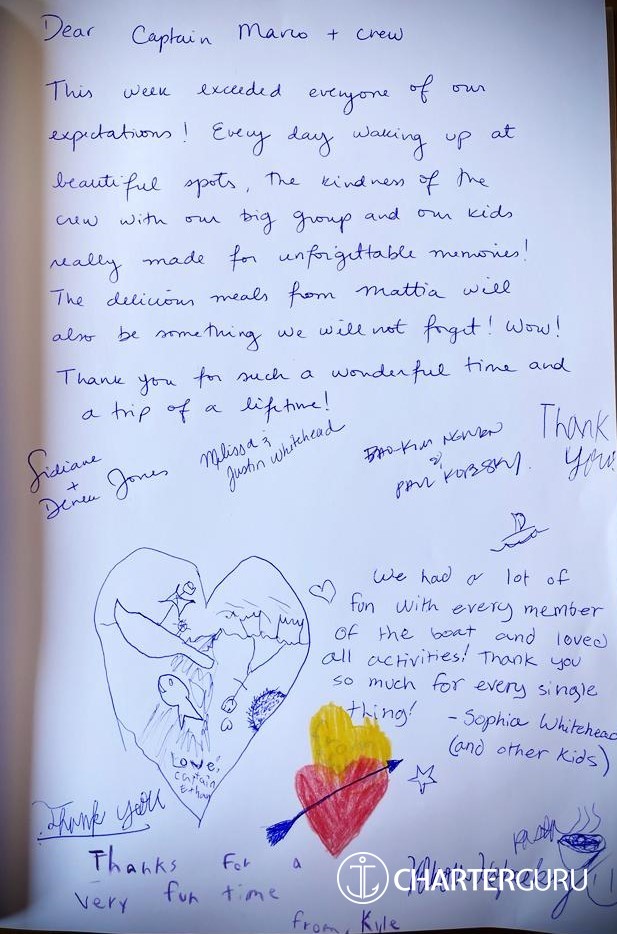 Dear Captain Marco + crew
This week exceeded everyone of our
expectations! Every day waking up at
beautiful spots, the kindness of the
crew with our big group and our kids
really made for unforgettable memories!
The delicious meals from Mattia will
also be something we will not forget! Wow!
Thank you for such a wonderful time and
a trip of a lifetime!
+
Jones
Melissa &
Justin Whitehead
&
Thank
You!
We had a lot of
fun with every member
of the boat and loved
all activities! Thank you
so much for every single
thing!
- Sophia Whitehead
(and other kids)
Love,
Captain
Ethan
Thank you
Thanks for a
very fun time
from, Kyle
CHARTERGURU